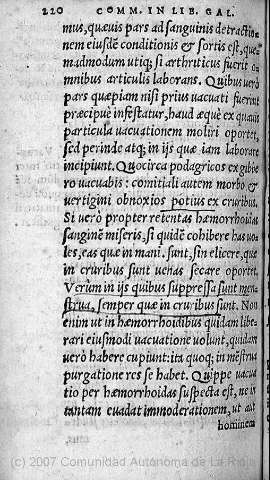 220 COMM. IN LIB. GAL.
mus, quæuis pars ad sanguinis detractio-
nem eiusdē conditionis & sortis est, quē
madmodum utiq; si arthriticus fuerit o-
mnibus articulis laborans. Quibus uerò
pars quæpiam nisi prius uacuati fuerint
præcipuè infestatur, haud æquè ex quauis
particula uacuationem moliri oportet,
sed perinde atq; in ijs quæ iam laborare
incipiunt. Quocirca podagricos ex gibbe
ro uacuabis: comitiali autem morbo &
vertigini obnoxios potius ex cruribus.
Si uerò propter retentas hæmorrhoidas
sanginē miseris, si quidē cohibere has uo-
les, eas quæ in mani. sunt, sin elicere, quæ
in cruribus sunt uenas secare oportet.
Verùm in ijs quibus suppressa sunt men-
strua, semper quæ in cruribus sunt. Non
enim ut in hæmorrhoidibus quidam libe-
rari eiusmodi uacuatione uolunt, quidam
uerò habere cupiunt: ita quoq; in mēstrua
purgatione res se habet. Quippe uacua
tio per hæmorrhoidas suspecta est, ne in
tantam euadat immoderationem, ut aut
hominem
(c) 2007 Comunidad Autónoma de La Rioja